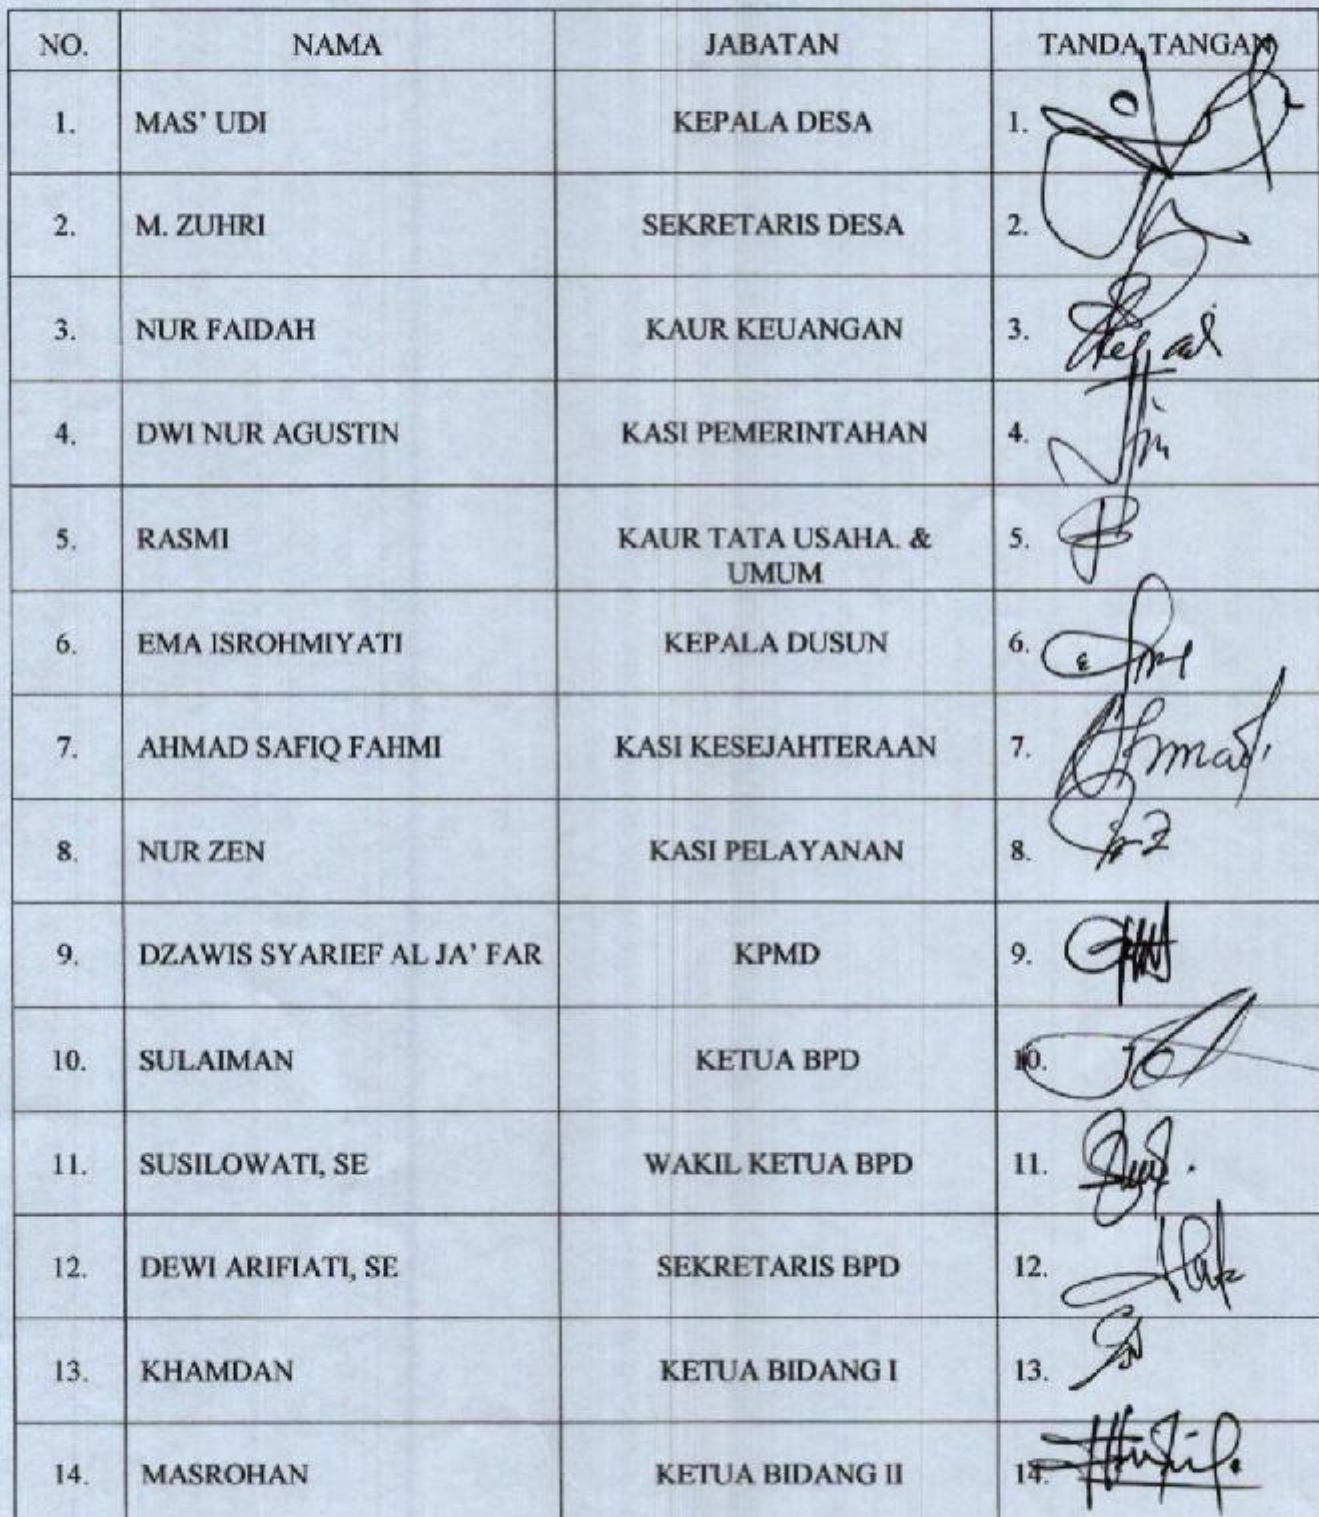 NO. NAMA JABATAN TANDA TANGAN
1. MAS' UDI KEPALA DESA 1.
2. M. ZUHRI SEKRETARIS DESA 2.
3. NUR FAIDAH KAUR KEUANGAN 3.
4. DWI NUR AGUSTIN KASI PEMERINTAHAN 4.
5. RASMI KAUR TATA USAHA. & 5.
UMUM
6. EMA ISROHMIYATI KEPALA DUSUN 6.
7. AHMAD SAFIQ FAHMI KASI KESEJAHTERAAN 7. Ahmad
8. NUR ZEN KASI PELAYANAN 8.
9. DZAWIS SYARIEF AL JA' FAR KPMD 9.
10. SULAIMAN KETUA BPD 10.
11. SUSILOWATI, SE WAKIL KETUA BPD 11.
12. DEWI ARIFIATI, SE SEKRETARIS BPD 12.
13. KHAMDAN KETUA BIDANG I 13.
14. MASROHAN KETUA BIDANG II 14.